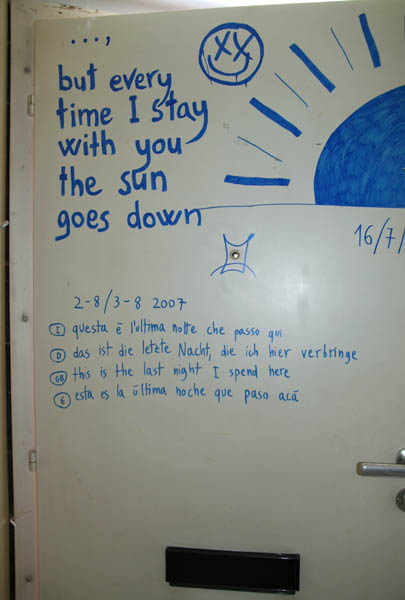 ...,
but every
time I stay
with you
the sun
goes down
16/7/
2-8/3-8 2007
I questa è l'ultima notte che passo qui
D das ist die letzte Nacht, die ich hier verbringe
GB this is the last night I spend here
E esta es la última noche que paso acá